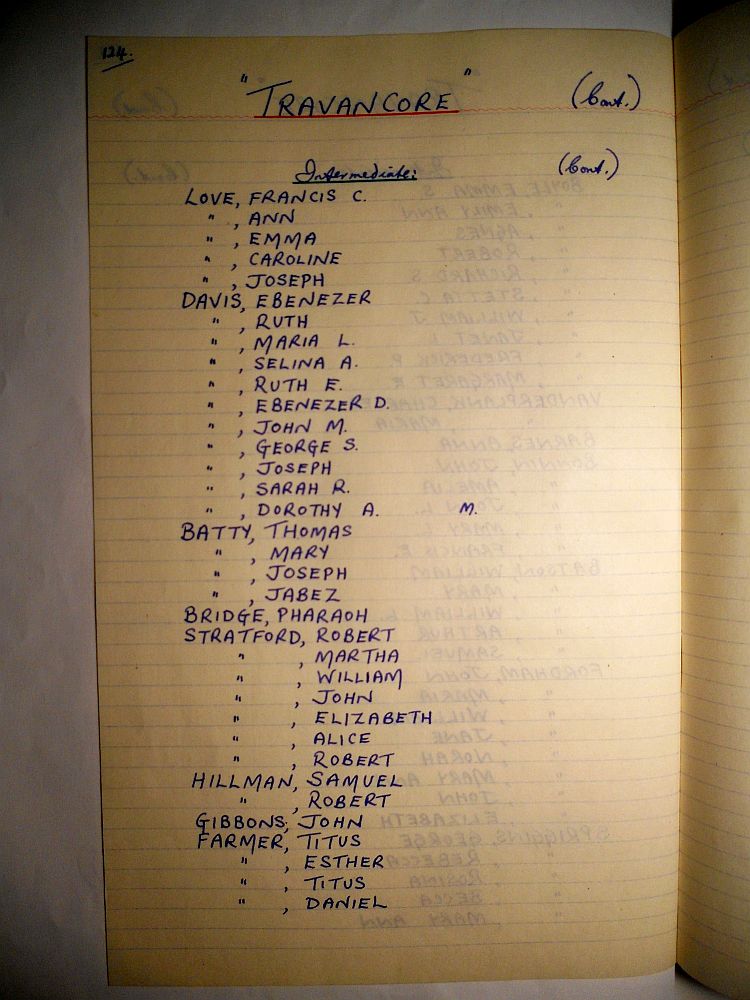 124.
"TRAVANCORE" (Cont.)
Intermediate: (Cont.)
LOVE, FRANCIS C.
" , ANN
" , EMMA
" , CAROLINE
" , JOSEPH
DAVIS, EBENEZER
" , RUTH
" , MARIA L.
" , SELINA A.
" , RUTH E.
" , EBENEZER D.
" , JOHN M.
" , GEORGE S.
" , JOSEPH
" , SARAH R.
" , DOROTHY A. M.
BATTY, THOMAS
" , MARY
" , JOSEPH
" , JABEZ
BRIDGE, PHARAOH
STRATFORD, ROBERT
" , MARTHA
" , WILLIAM
" , JOHN
" , ELIZABETH
" , ALICE
" , ROBERT
HILLMAN, SAMUEL
" , ROBERT
GIBBONS, JOHN
FARMER, TITUS
" , ESTHER
" , TITUS
" , DANIEL